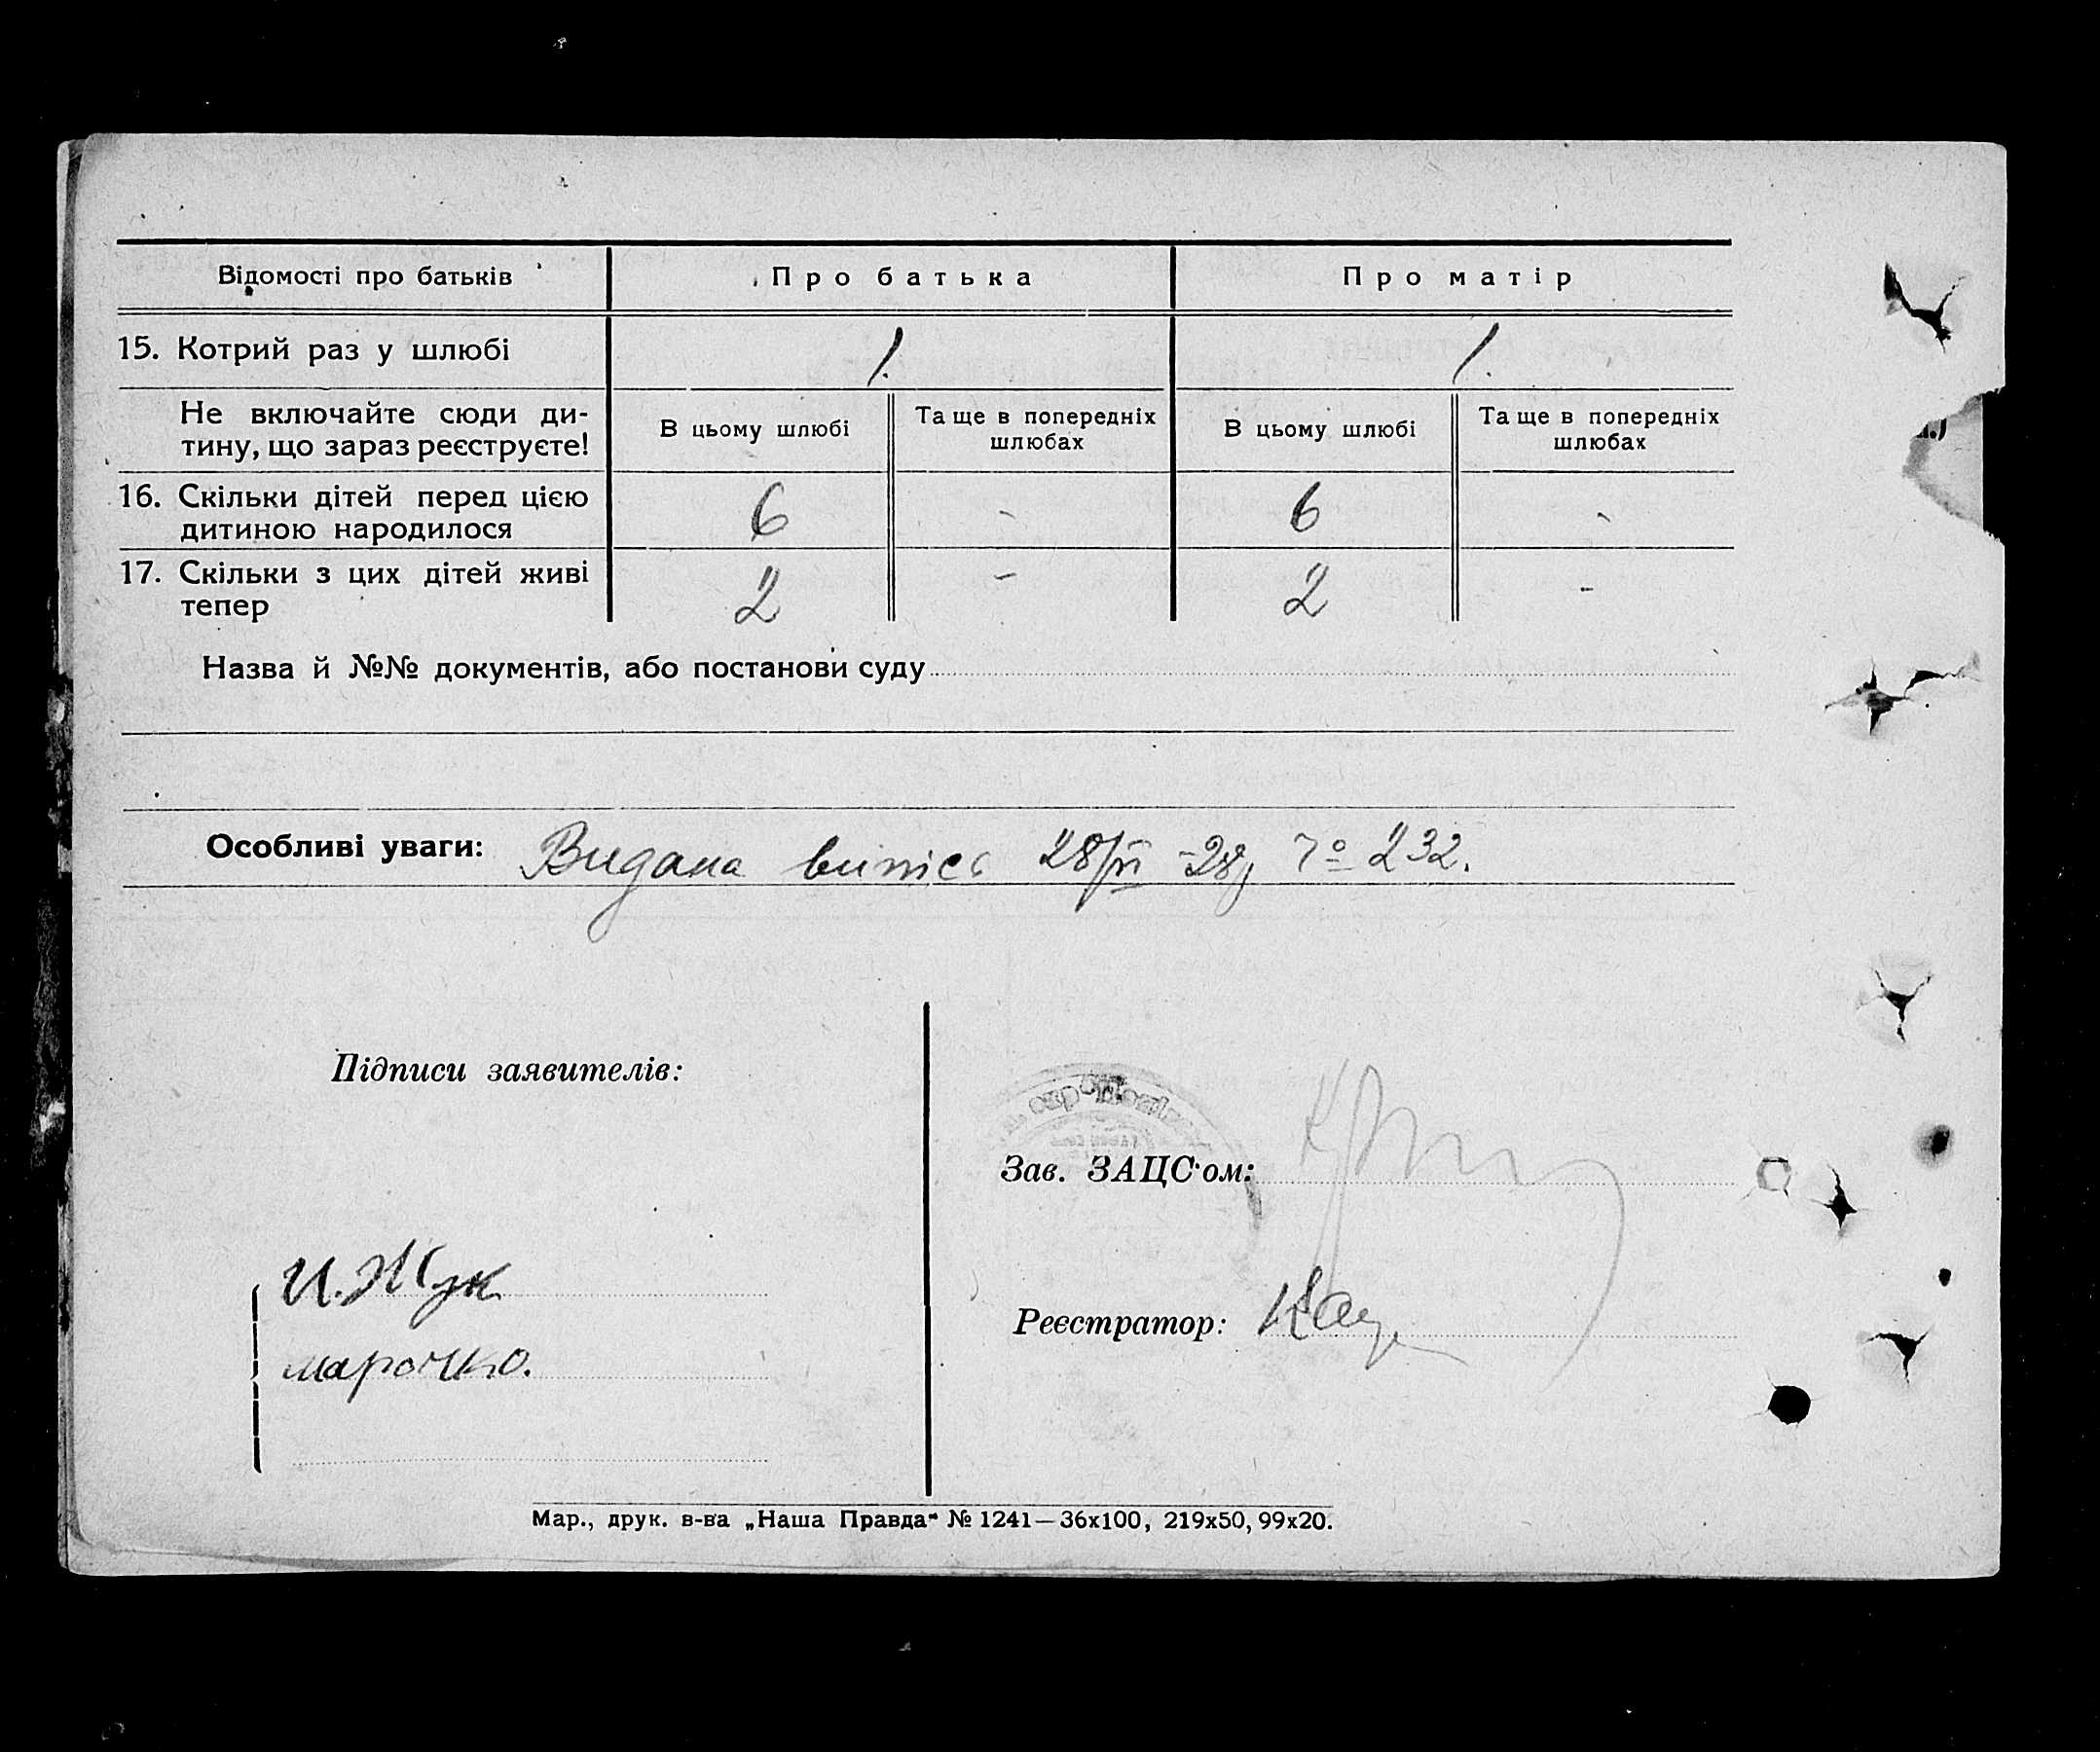 Відомості про батьків Про батька Про матір
15. Котрий раз у шлюбі 1. 1.
Не включайте сюди ди-
тину, що зараз реєструєте!
В цьому шлюбі
Та ще в попередніх
шлюбах
В цьому шлюбі
Та ще в попередніх
шлюбах
16. Скільки дітей перед цією
дитиною народилося
6 - 6 -
17. Скільки з цих дітей живі
тепер
2 - 2 -
Назва й №№ документів, або постанови суду
Особливі уваги: Видана випис 28/VI -28 № 232.
Підписи заявителів:
И. Жук
марочко.
Зав. ЗАЦС'ом:
Реєстратор:
Мар., друк. в-ва „Наша Правда“ № 1241—36x100, 219x50, 99x20.